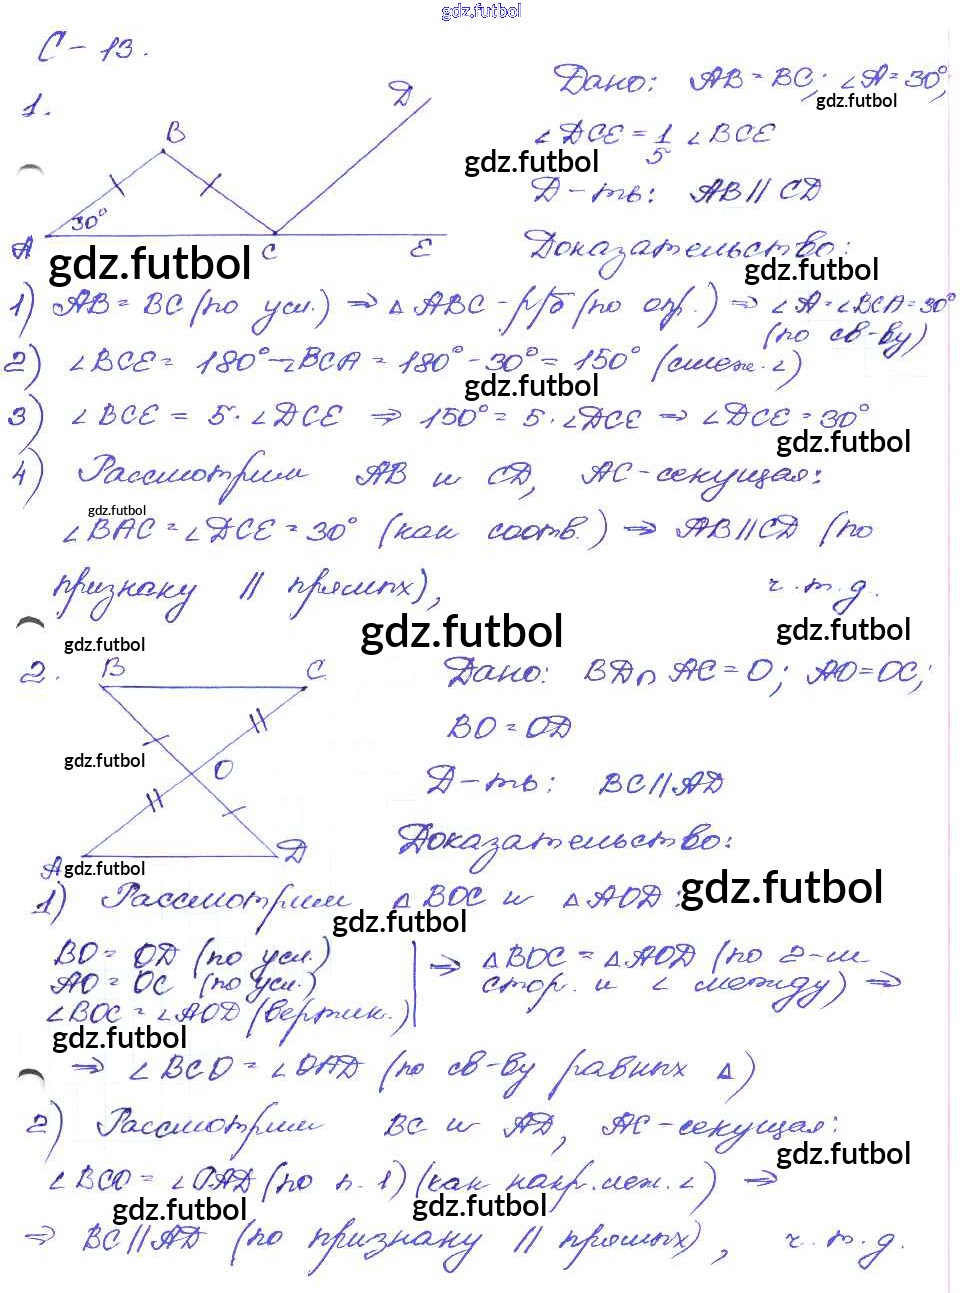 gdz.futbol
С - 13.
1.
B
D
30°
A
C
E
gdz.futbol
Дано: AB = BC; ∠A = 30°;
gdz.futbol
∠DCE = 1/5 ∠BCE
gdz.futbol
Д-ть: AB || CD
Доказательство:
gdz.futbol
1) AB = BC (по усл.) ⇒ △ABC - р/б (по опр.) ⇒ ∠A = ∠BCA = 30°
(по св-ву)
2) ∠BCE = 180° - ∠BCA = 180° - 30° = 150° (смеж. ∠)
gdz.futbol
3) ∠BCE = 5 · ∠DCE ⇒ 150° = 5 · ∠DCE ⇒ ∠DCE = 30°
gdz.futbol
4) Рассмотрим AB и CD, AC - секущая:
gdz.futbol
∠BAC = ∠DCE = 30° (как соотв.) ⇒ AB || CD (по
признаку || прямых), ч.т.д.
gdz.futbol
gdz.futbol
gdz.futbol
2.
B
C
O
A
D
gdz.futbol
gdz.futbol
Дано: BD ∩ AC = O; AO = OC;
BO = OD
Д-ть: BC || AD
Доказательство:
gdz.futbol
1) Рассмотрим △BOC и △AOD:
gdz.futbol
BO = OD (по усл.)
AO = OC (по усл.)
∠BOC = ∠AOD (вертик.)
⇒ △BOC = △AOD (по 2-м
стор. и ∠ между) ⇒
gdz.futbol
⇒ ∠BCO = ∠OAD (по св-ву равных △)
2) Рассмотрим BC и AD, AC - секущая:
gdz.futbol
∠BCO = ∠OAD (по п. 1) (как накр. леж. ∠) ⇒
gdz.futbol
gdz.futbol
⇒ BC || AD (по признаку || прямых), ч.т.д.